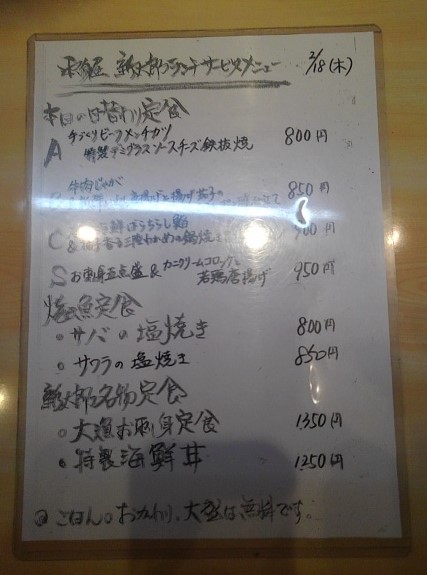 新太郎ランチサービスメニュー 2/18(木)
本日の日替わり定食
A 手づくりビーフメンチカツ
特製デミグラスソースチーズ鉄板焼 800円
牛肉じゃが
850円
C 海鮮ばらちらし
& の鍋焼
S お刺身五点盛 & カニクリームコロッケ
若鶏唐揚げ 950円
焼魚定食
○ サバの塩焼き 800円
○ サワラの塩焼き 850円
新太郎名物定食
○ 大漁お刺身定食 1350円
○ 特製海鮮丼 1250円
ごはんのおかわり、大盛は無料です。